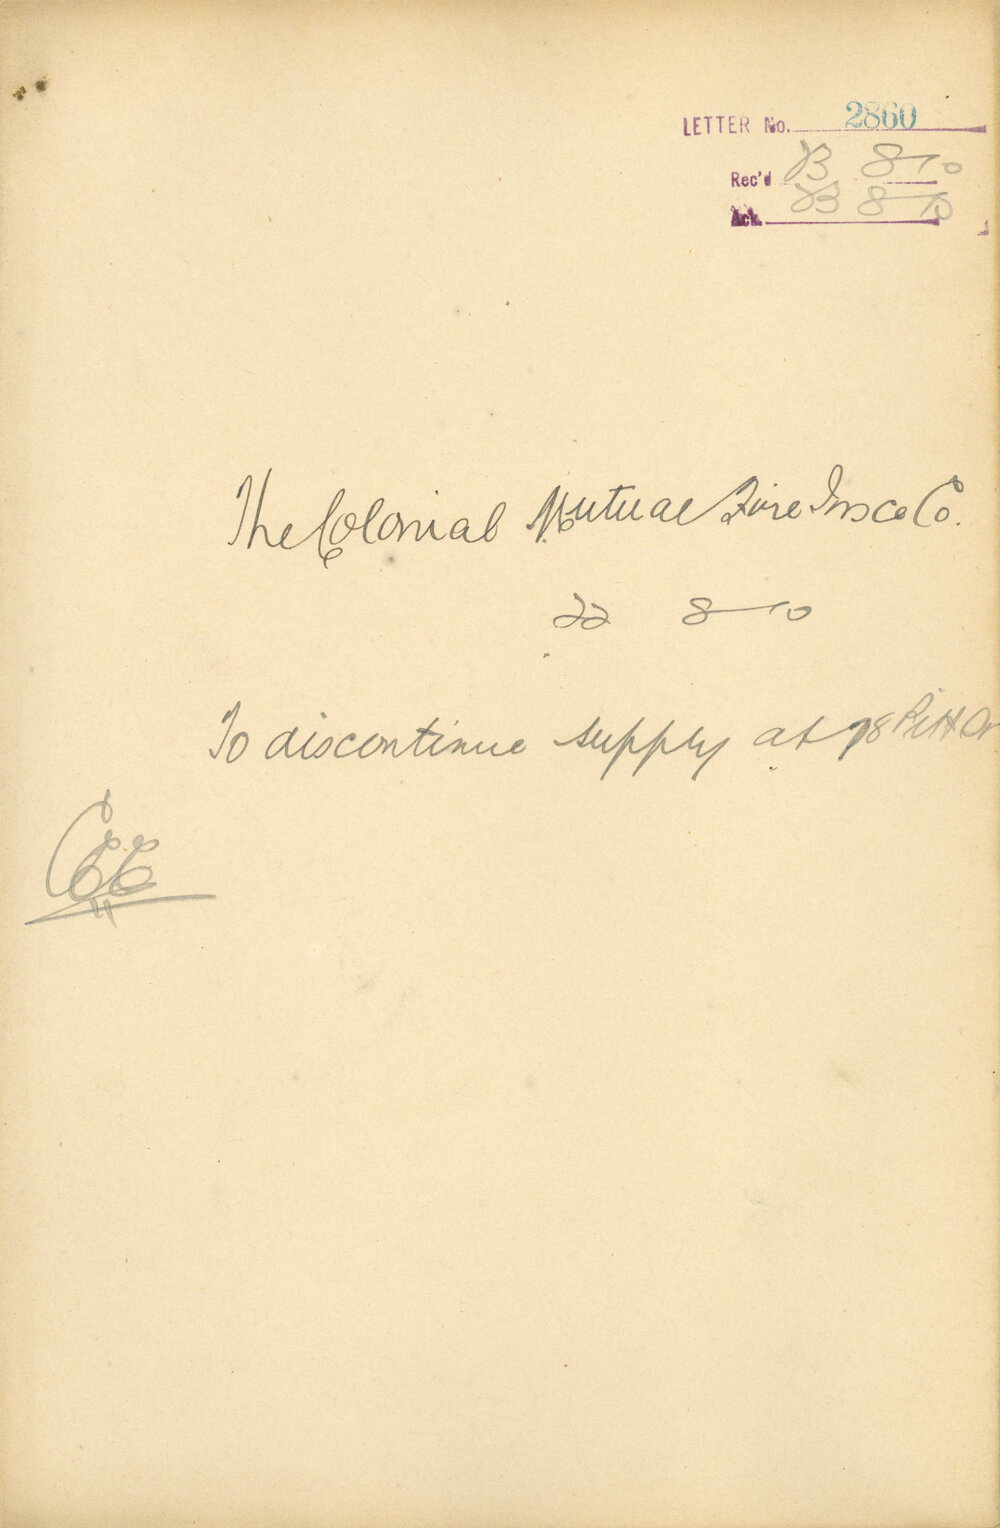 LETTER No. 2860
Rec'd 23 8-10
Ack. 23 8-10
The Colonial Mutual Fire Insce Co.
22 8-10
To discontinue supply at 78 Pitt